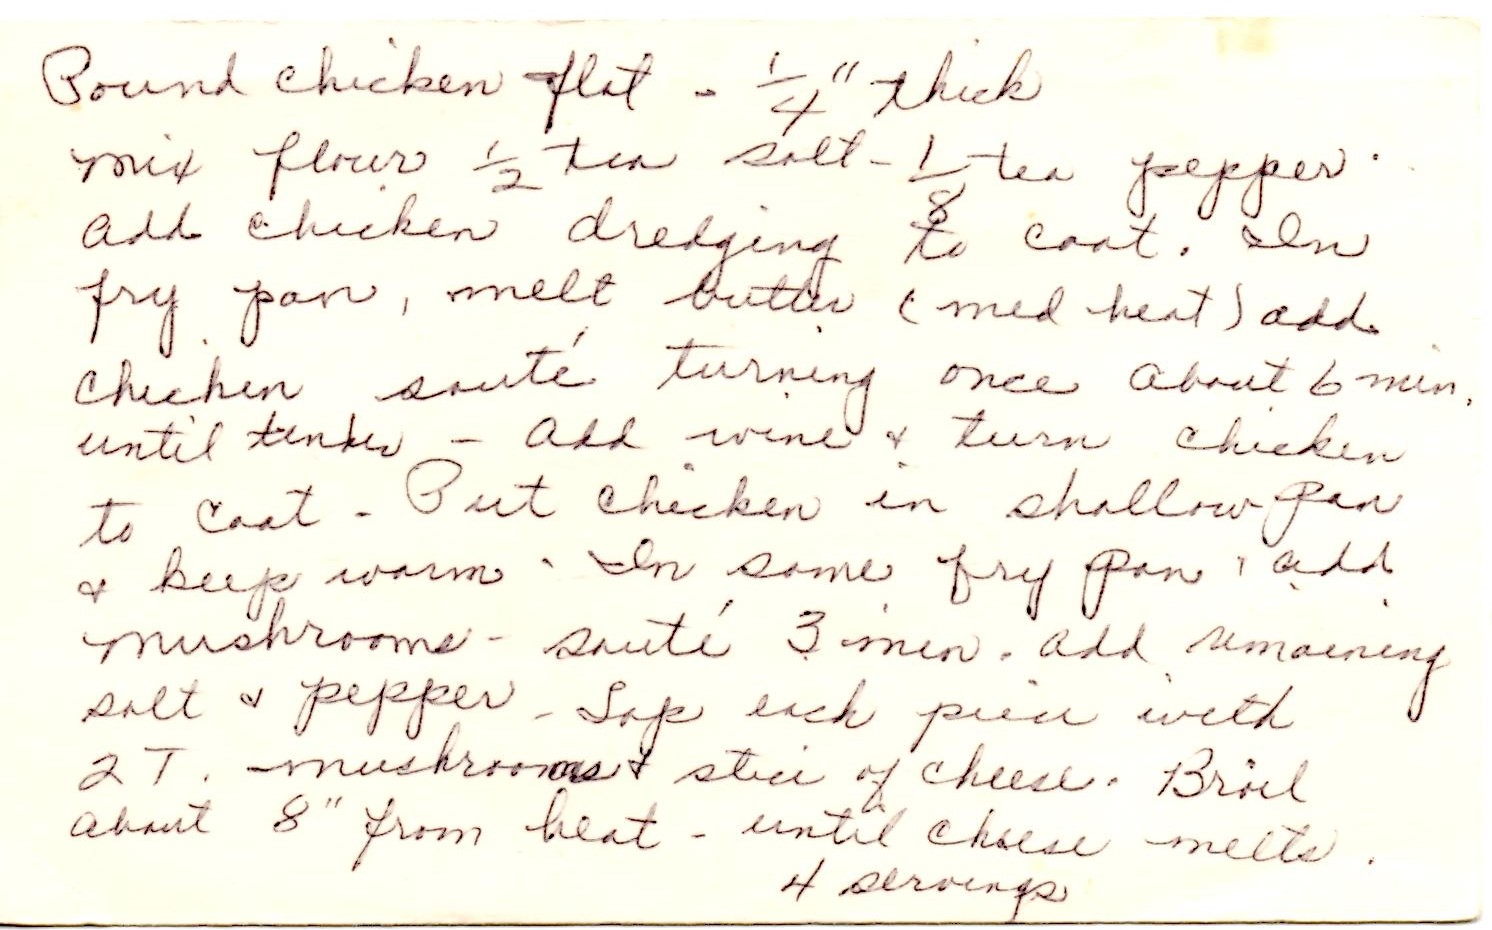 Pound chicken flat - 1/4" thick
mix flour 1/2 tea salt - 1/8 tea pepper.
add chicken dredging to coat. In
fry pan, melt butter (med heat) add
chicken sauté turning once about 6 min.
until tender - add wine & turn chicken
to coat - Put chicken in shallow pan
& keep warm. In same fry pan, add
mushrooms - sauté 3 min. add remaining
salt & pepper - Top each piece with
2 T. mushrooms & slice of cheese. Broil
about 8" from heat - until cheese melts.
4 servings